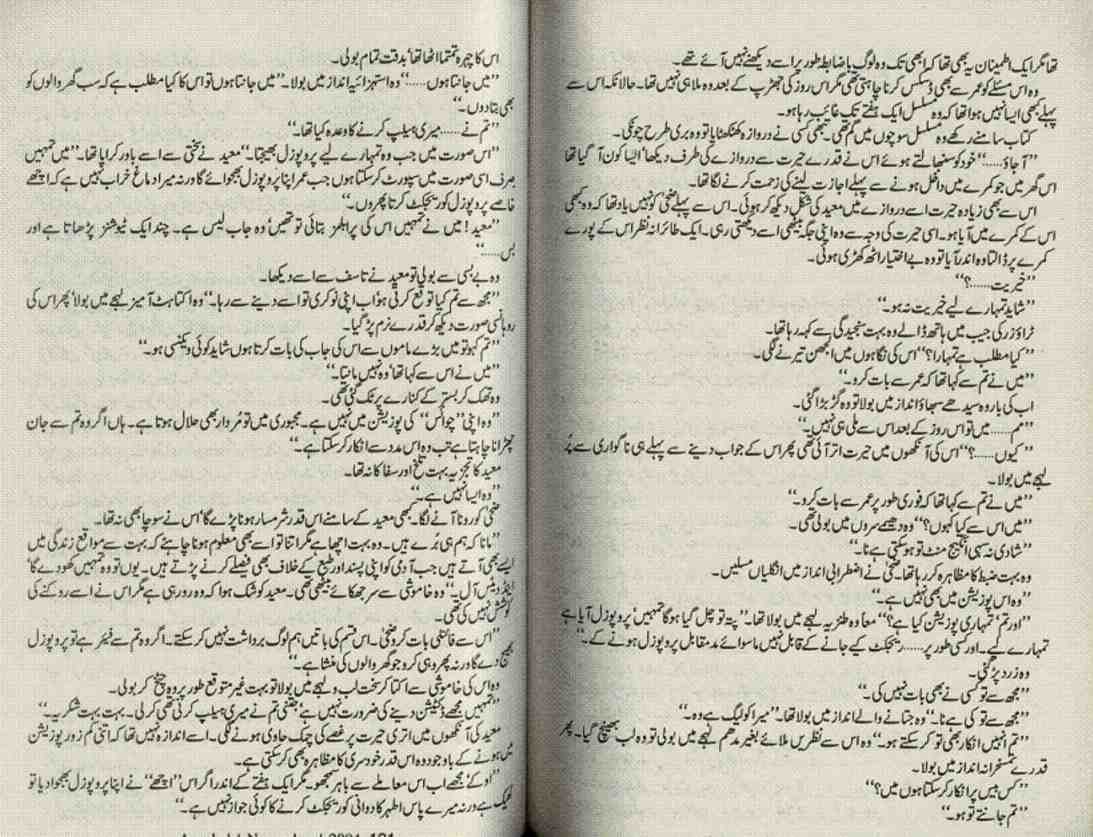 تھا مگر ایک اطمینان یہ بھی تھا کہ ابھی تک وہ لوگ باضابطہ طور پر اسے دیکھنے نہیں آئے تھے۔
وہ اس مسئلے کو عمر سے بھی ڈسکس کرنا چاہتی تھی مگر اس روز کی جھڑپ کے بعد وہ ملا ہی نہیں تھا۔ حالانکہ اس سے
پہلے کبھی ایسا نہیں ہوا تھا کہ وہ مسلسل ایک ہفتے تک غائب رہا ہو۔
کتاب سامنے رکھے وہ مسلسل سوچوں میں گم تھی۔ تبھی کسی نے دروازہ کھٹکھٹایا تو وہ بری طرح چونکی۔
’’آ جاؤ......‘‘ خود کو سنبھالتے ہوئے اس نے قدرے حیرت سے دروازے کی طرف دیکھا‘ ایسا کون آ گیا تھا
اس گھر میں جو کمرے میں داخل ہونے سے پہلے اجازت لینے کی زحمت کرنے لگا تھا۔
اس سے بھی زیادہ حیرت اسے دروازے میں معید کی شکل دیکھ کر ہوئی۔ اس سے پہلے ضحیٰ کو نہیں یاد تھا کہ وہ کبھی
اس کے کمرے میں آیا ہو۔ اسی حیرت کی وجہ سے وہ اپنی جگہ بیٹھی اسے دیکھتی رہی۔ ایک طائرانہ نظر اس کے پورے
کمرے پر ڈالتا وہ اندر آیا تو وہ بے اختیار اٹھ کھڑی ہوئی۔
’’خیریت......؟‘‘
’’شاید تمہارے لیے خیریت نہ ہو۔‘‘
ٹراؤزر کی جیب میں ہاتھ ڈالے وہ بہت سنجیدگی سے کہہ رہا تھا۔
’’کیا مطلب ہے تمہارا؟‘‘ اس کی نگاہوں میں الجھن تیرنے لگی۔
’’میں نے تم سے کہا تھا کہ عمر سے بات کرو۔‘‘
اب کی بار وہ سیدھے سبھاؤ انداز میں بولا تو وہ گڑبڑا گئی۔
’’مم...... میں تو اس روز کے بعد اس سے ملی ہی نہیں۔‘‘
’’کیوں......؟‘‘ اس کی آنکھوں میں حیرت اتر آئی تھی پھر اس کے جواب دینے سے پہلے ہی ناگواری سے پُر
لہجے میں بولا۔
’’میں نے تم سے کہا تھا کہ فوری طور پر عمر سے بات کرو۔‘‘
’’میں اس سے کیا کہوں؟‘‘ وہ دھیمے سروں میں بولی تھی۔
’’شادی نہ سہی انگیج منٹ تو ہو سکتی ہے نا۔‘‘
وہ بہت ضبط کا مظاہرہ کر رہا تھا۔ ضحیٰ نے اضطراری انداز میں انگلیاں مسلیں۔
’’وہ اس پوزیشن میں بھی نہیں ہے۔‘‘
’’اور تم‘ تمہاری پوزیشن کیا ہے؟‘‘ معاً وہ طنزیہ لہجے میں بولا تھا۔ ’’پتہ تو چل گیا ہوگا تمہیں‘ پروپوزل آیا ہے
تمہارے لیے۔ اور کسی طور پر...... ریجیکٹ کیے جانے کے قابل نہیں ماسوائے مدمقابل پروپوزل ہونے کے۔‘‘
وہ زرد پڑ گئی۔
’’مجھ سے تو کسی نے بھی بات نہیں کی۔‘‘
’’مجھ سے تو کی ہے نا۔‘‘ وہ جتانے والے انداز میں بولا تھا۔ ’’میرا کولیگ ہے وہ۔‘‘
’’تم انہیں انکار بھی تو کر سکتے ہو۔‘‘ وہ اس سے نظریں ملائے بغیر مدھم لہجے میں بولی تو وہ لب بھینچ گیا۔ پھر
قدرے تمسخرانہ انداز میں بولا۔
’’کس بیس پر انکار کر سکتا ہوں میں؟‘‘
’’تم جانتے تو ہو۔‘‘
اس کا چہرہ تمتما اٹھا تھا‘ بدقت تمام بولی۔
’’میں جانتا ہوں......‘‘ وہ استہزائیہ انداز میں بولا۔ ’’میں جانتا ہوں تو اس کا کیا مطلب ہے کہ سب گھر والوں کو
بھی بتا دوں۔‘‘
’’تم نے...... میری ہیلپ کرنے کا وعدہ کیا تھا۔‘‘
’’اس صورت میں جب وہ تمہارے لیے پروپوزل بھیجتا۔‘‘ معید نے سختی سے اسے باور کرایا تھا۔ ’’میں تمہیں
صرف اسی صورت میں سپورٹ کر سکتا ہوں جب عمر اپنا پروپوزل بھجوائے گا ورنہ میرا دماغ خراب نہیں ہے کہ اچھے
خاصے پروپوزل کو ریجیکٹ کرتا پھروں۔‘‘
’’معید! میں نے تمہیں اس کی پرابلمز بتائی تو تھیں‘ وہ جاب لیس ہے۔ چند ایک ٹیوشنز پڑھاتا ہے اور
بس......‘‘
وہ بے بسی سے بولی تو معید نے تاسف سے اسے دیکھا۔
’’مجھ سے تم کیا توقع کرتی ہو‘ اب اپنی نوکری تو اسے دینے سے رہا۔‘‘ وہ اکتاہٹ آمیز لہجے میں بولا‘ پھر اس کی
روہانسی صورت دیکھ کر قدرے نرم پڑ گیا۔
’’تم کہو تو میں بڑے ماموں سے اس کی جاب کی بات کرتا ہوں شاید کوئی ویکنسی ہو۔‘‘
’’میں نے اس سے کہا تھا‘ وہ نہیں مانتا۔‘‘
وہ تھک کر بستر کے کنارے پر ٹک گئی تھی۔
’’وہ اپنی ’’چوائس‘‘ کی پوزیشن میں نہیں ہے۔ مجبوری میں تو مُردار بھی حلال ہوتا ہے۔ ہاں اگر وہ تم سے جان
چھڑانا چاہتا ہے تب وہ اس مدد سے انکار کر سکتا ہے۔‘‘
معید کا تجزیہ بہت تلخ اور سفاکانہ تھا۔
’’وہ ایسا نہیں ہے۔‘‘
ضحیٰ کو رونا آنے لگا۔ کبھی معید کے سامنے اس قدر شرمسار ہونا پڑے گا‘ اس نے سوچا بھی نہ تھا۔
’’مانا کہ ہم ہی بُرے ہیں۔ وہ بہت اچھا ہے مگر اتنا تو اسے بھی معلوم ہونا چاہئے کہ بہت سے مواقع زندگی میں
ایسے بھی آتے ہیں جب آدمی کو اپنی پسند اور طبع کے خلاف بھی فیصلے کرنے پڑتے ہیں۔ یوں تو وہ تمہیں کھو دے گا‘
اینڈ دیٹس آل۔‘‘ وہ خاموشی سے سر جھکائے بیٹھی تھی۔ معید کو شک ہوا کہ وہ رو رہی ہے مگر اس نے اسے روکنے کی
کوشش نہیں کی تھی۔
’’اس سے فائنلی بات کر ضحیٰ۔ اس قسم کی باتیں ہم لوگ برداشت نہیں کر سکتے۔ اگر وہ تم سے فیئر ہے تو پروپوزل
بھیج دے گا ورنہ پھر وہی کرو جو گھر والوں کی منشا ہے۔‘‘
وہ اس کی خاموشی سے اکتا کر سخت لب و لہجے میں بولا تو بہت غیر متوقع طور پر وہ چیخ کر بولی۔
’’تمہیں مجھے ڈکٹیشن دینے کی ضرورت نہیں ہے‘ جتنی تم نے میری ہیلپ کرنی تھی کر لی۔ بہت بہت شکریہ۔‘‘
معید کی آنکھوں میں اتری حیرت پر غصے کی چمک حاوی ہونے لگی۔ اسے اندازہ نہیں تھا کہ اتنی کمزور پوزیشن
میں ہونے کے باوجود وہ اس قدر خودسری کا مظاہرہ بھی کر سکتی ہے۔
’’اوکے‘ مجھے اب اس معاملے سے باہر سمجھو۔ مگر ایک ہفتے کے اندر اگر اس ’’اچھے‘‘ نے اپنا پروپوزل بھجوا دیا تو
ٹھیک ہے ورنہ میرے پاس اطہر کا دوانی کو ریجیکٹ کرنے کا کوئی جواز نہیں ہے۔‘‘